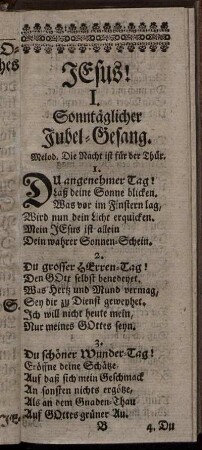 JEsus!
I.
Sonntäglicher
Jubel-Gesang.
Melod. Die Nacht ist für der Thür.
1.
DU angenehmer Tag!
Laß deine Sonne blicken,
Was vor im Finstern lag,
Wird nun dein Licht erquicken.
Mein JEsus ist allein
Dein wahrer Sonnen-Schein.
2.
Du grosser HErren-Tag!
Den GOtt selbst benedeyet,
Was Hertz und Mund vermag,
Sey dir zu Dienst geweyhet.
Ich will nicht heute mein,
Nur meines GOttes seyn.
3.
Du schöner Wunder-Tag!
Eröffne deine Schätze,
Auf daß sich mein Geschmack
An sonsten nichts ergötze,
Als an dem Gnaden-Thau
Auf GOttes grüner Au.
B 4. Du